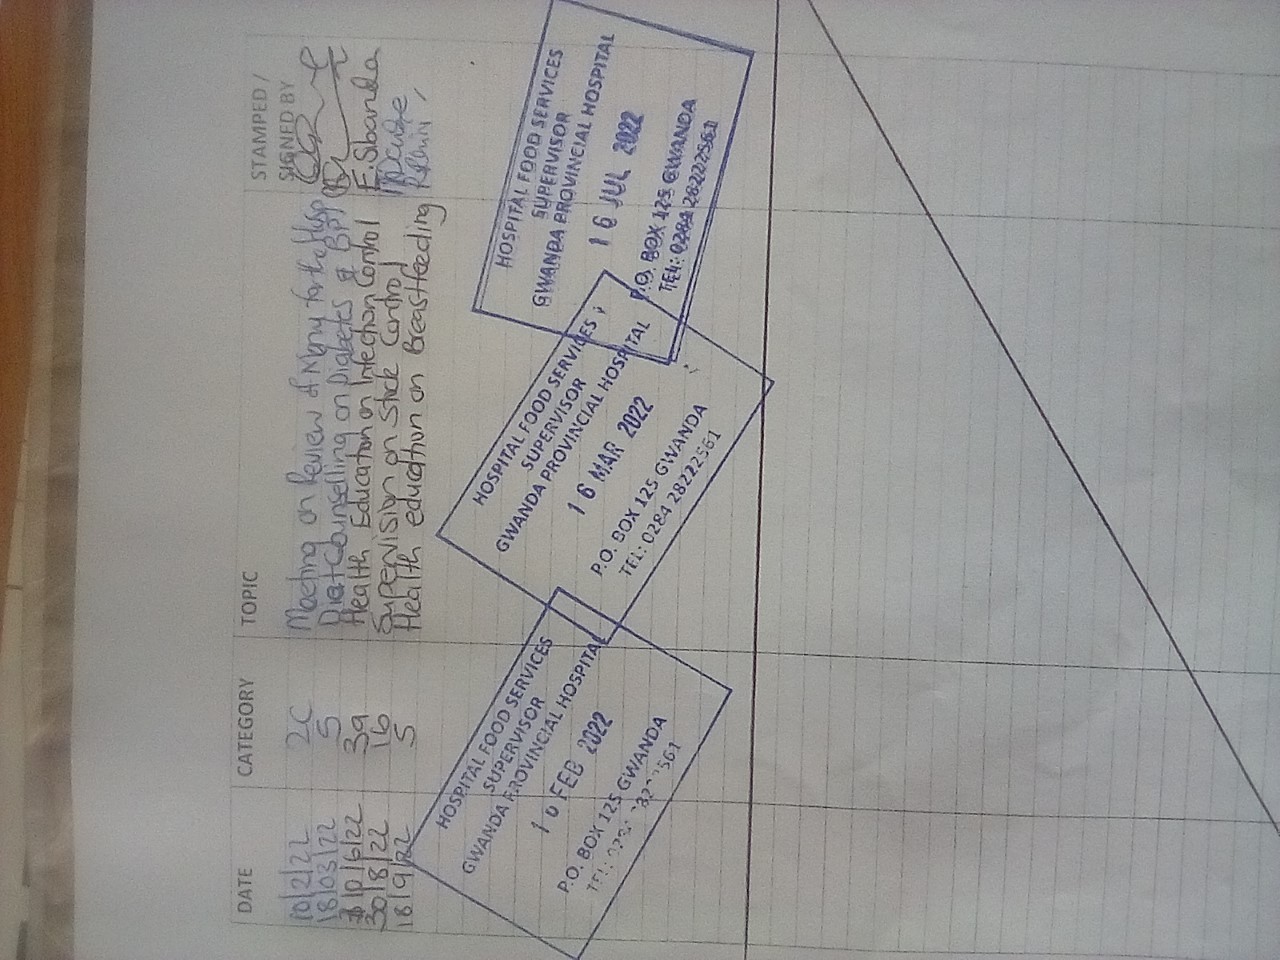 DATE CATEGORY TOPIC STAMPED / SIGNED BY
10/2/22 2C Meeting on Review of Menu for the Hosp
18/03/22 5 Diet Counselling on Diabetes & BP
10/6/22 3a Health Education on Infection Control E. Sibanda
30/8/22 1b Supervision on Stock Control
18/9/22 5 Health education on Breastfeeding
HOSPITAL FOOD SERVICES
SUPERVISOR
GWANDA PROVINCIAL HOSPITAL
10 FEB 2022
P.O. BOX 125 GWANDA
TEL:
HOSPITAL FOOD SERVICES
SUPERVISOR
GWANDA PROVINCIAL HOSPITAL
16 MAR 2022
P.O. BOX 125 GWANDA
TEL: 0284 28222561
HOSPITAL FOOD SERVICES
SUPERVISOR
GWANDA PROVINCIAL HOSPITAL
16 JUL 2022
P.O. BOX 125 GWANDA
TEL: 0284 28222561